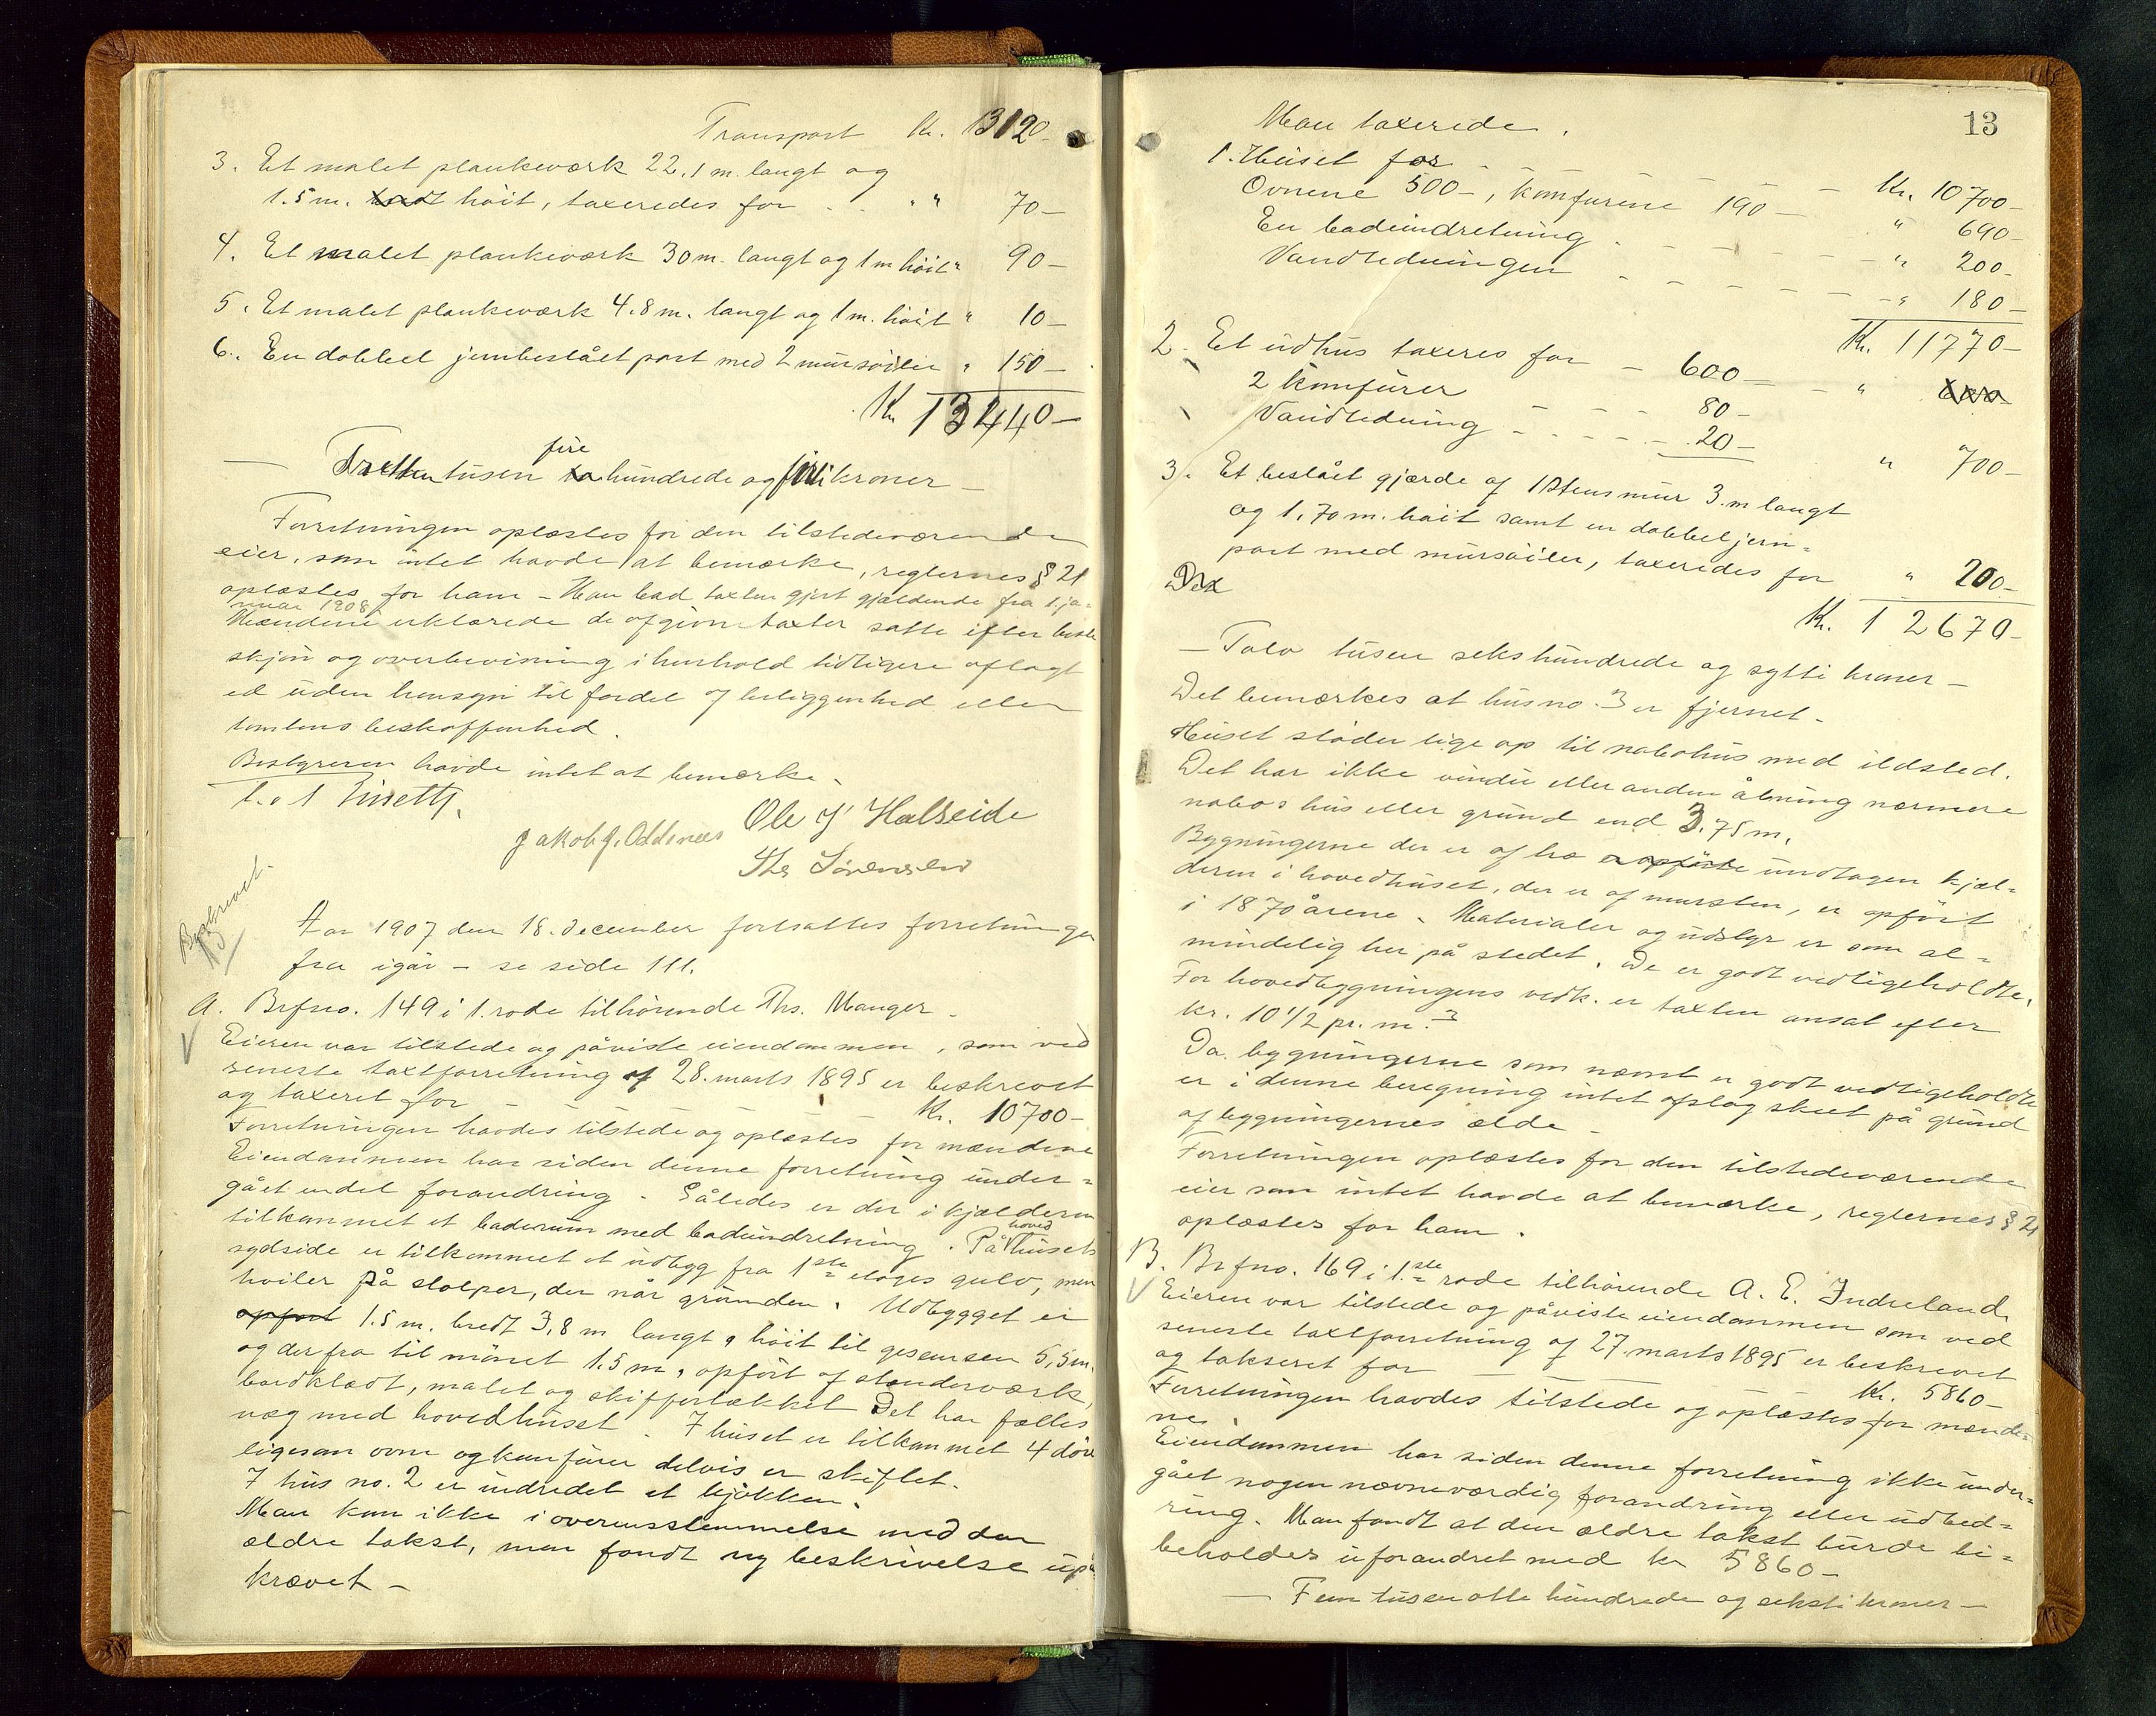 Transport Kr. 13120-
3. Et malet plankeværk 22.1 m. langt og
1.5 m. høit, taxeredes for " " 70-
4. Et malet plankeværk 30 m. langt og 1 m høit " 90-
5. Et malet plankeværk 4.8 m. langt og 1 m. høit " 10-
6. En dobbel jernbeslået port med 2 mursøiler " 150-
Kr. 13440-
fire
- Tretten tusen to hundrede og firti kroner -
Forretningen oplæstes for den tilstedeværende
eier, som intet havde at bemærke, reglernes § 21
oplæstes for ham - Han bad taxten gjort gjældende fra 1. ja-
nuar 1908
Mændene erklærede de afgivne taxter satte efter bedste
skjøn og overbevisning i henhold tidligere aflagt
ed uden hensyn til fordel af beliggenhed eller
tomtens beskaffenhed.
Bestyreren havde intet at bemærke.
Jakob J. Oddenes Ole J Halseide
Ths Sørensen
Aar 1907 den 18. december fortsattes forretningen
fra igår - se side 111.
A. Brfno. 149 i 1. rode tilhørende Ths. Manger.
Eieren var tilstede og påviste eiendommen, som ved
seneste taxtforretning af 28. marts 1895 er beskrevet
og taxeret for - - - - Kr. 10700-
Forretningen havdes tilstede og oplæstes for mændene
Eiendommen har siden denne forretning under=
gået endel forandring. Således er der i kjælderen
tilkommet et baderum med badeindretning. På hoved
husets
sydside er tilkommet et udbygg fra 1ste etages gulv, men
hviler på stolper, der når grunden. Udbygget er
opført 1.5 m. bredt 3,8 m langt, høit til gesemsen 5,5 m.
og der fra til mønet 1.5 m, opført af stenderværk,
bordklædt, malet og skiffertækket Det har fælles
væg med hovedhuset. I huset er tilkommet 4 døre
ligesom ovne og komfurer delvis er skiftet.
I hus no. 2 er indredet et kjøkken.
Man kom ikke i overensstemmelse med den
ældre takst, men fandt ny beskrivelse upå
krævet -
13
Man taxerede.
1. Huset for - - - Kr. 10700-
Ovnene 500-, komfurene 190- " 690-
En badeindretning - - - " 200-
Vandledningen - - - " 180-
Kr. 11770-
2. Et udhus taxeres for - 600- - " 600
2 komfurer 80-
Vandledning - - - 20- " 700-
3. Et beslået gjærde af 1 Stens mur 3. m langt
og 1.70 m. høit samt en dobbel jern=
port med mursøiler, taxeredes for " 200-
Det
Kr. 12670-
- Tolv tusen sekshundrede og sytti kroner -
Det bemærkes at hus no. 3 er fjernet.
Huset støder lige op til nabohus med ildsted.
Det har ikke vindu eller anden åbning nærmere
nabos hus eller grund end 3.75 m.
Bygningerne der er af træ er opførte undtagen kjæl=
deren i hovedhuset, der er af mursten, er opført
i 1870 årene. Materialer og udstyr er som al=
mindelig her på stedet. De er godt vedligeholdte.
For hovedbygningens vedk. er taxten ansat efter
kr. 10 1/2 pr. m.3
Da bygningerne som nævnt er godt vedligeholdte
er i denne beregning intet afslag skeet på grund
af bygningernes ælde -
Forretningen oplæstes for den tilstedeværende
eier som intet havde at bemærke, reglernes § 21
oplæstes for ham.
B. Brfno. 169 i 1.ste rode tilhørende A. E. Indreland,
Eieren var tilstede og påviste eiendommen som ved
seneste taxtforretning af 27. marts 1895 er beskrevet
og takseret for - - - Kr. 5860-
Forretningen havdes tilstede og oplæstes for mænde=
ne.
Eiendommen har siden denne forretning ikke under=
gået nogen nævneværdig forandring eller udbed=
ring. Man fandt at den ældre takst burde bi=
beholdes uforandret med kr 5860-
- Fem tusen otte hundrede og seksti kroner -